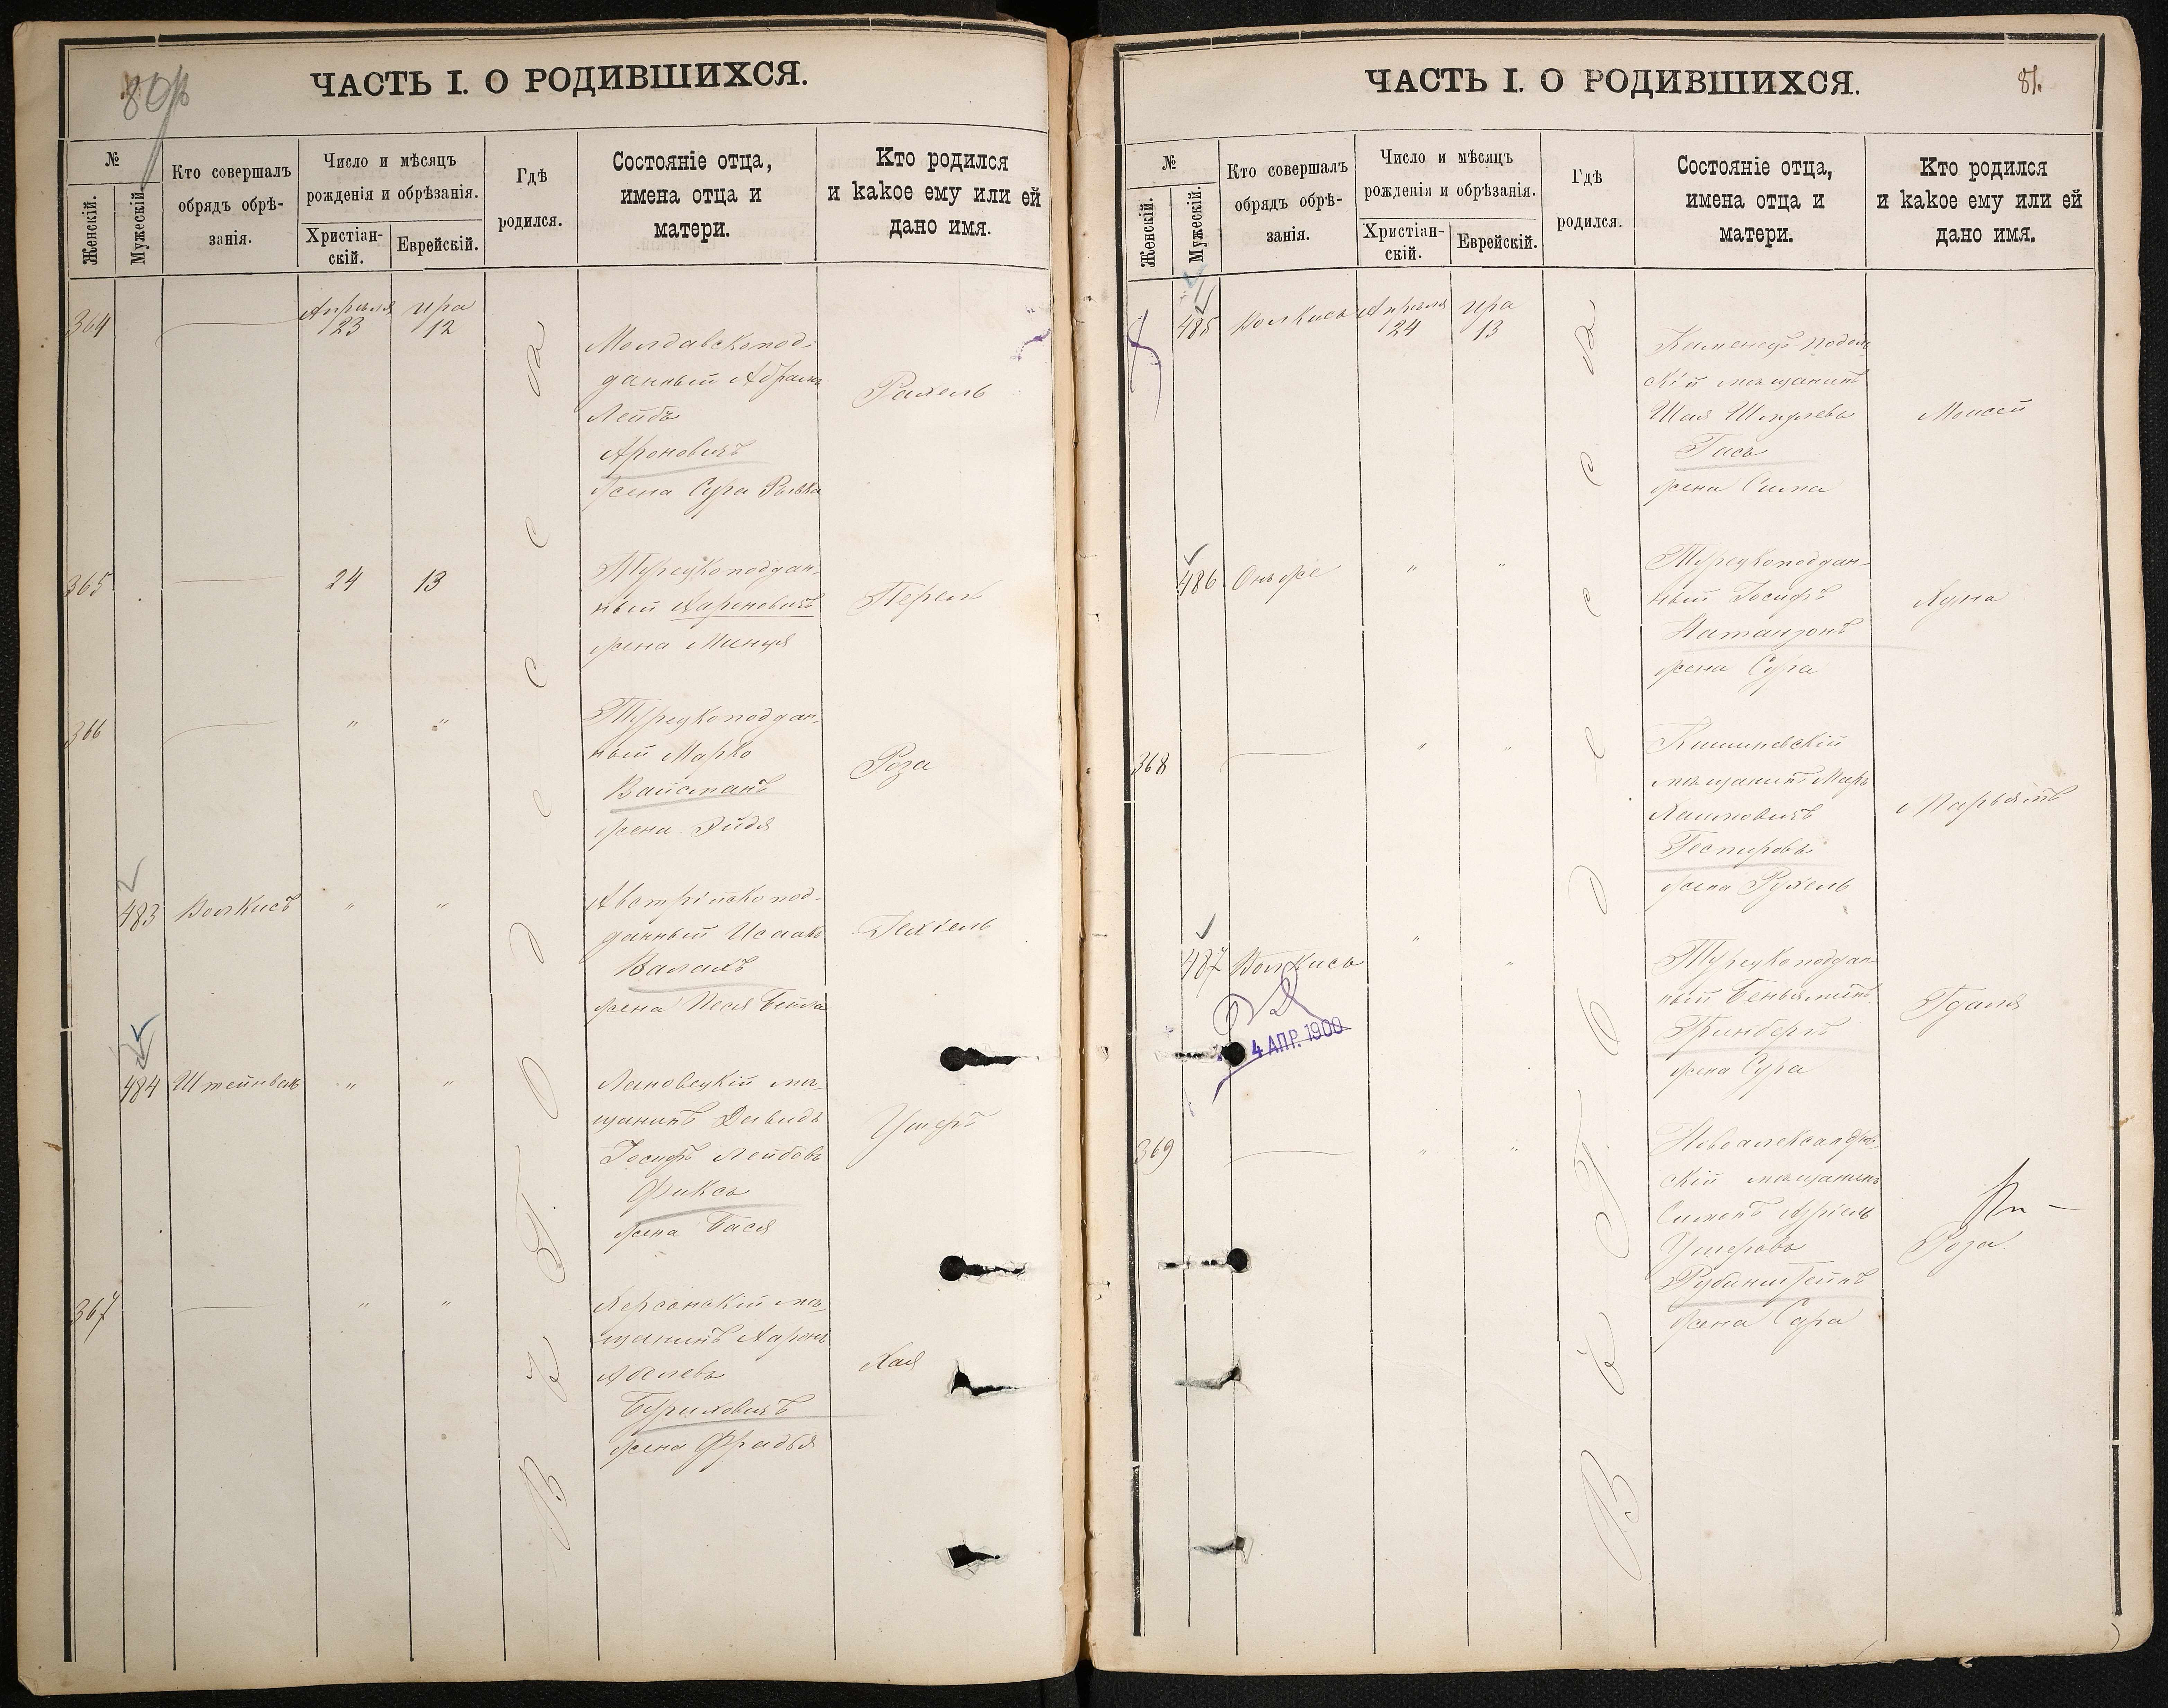 80
ЧАСТЬ I. О РОДИВШИХСЯ.
№
Женскій.
Мужескій.
Кто совершалъ
обрядъ обрѣ-
занія.
Число и мѣсяцъ
рожденія и обрѣзанія.
Христіан-
скій.
Еврейскій.
Гдѣ
родился.
Состояніе отца,
имена отца и
матери.
Кто родился
и какое ему или ей
дано имя.
364
Апрѣля
23
Ира
12
Молдавскопод-
данный Абрамъ
Лейбъ
Ароновичъ
жена Сура Ривка
Рахель
365
24
13
Турецкоподдан-
ный Аароновичъ
жена Минця
Перель
366
"
"
Турецкоподдан-
ный Марко
Вайсманъ
жена Эйдя
Роза
483
Волкисъ
"
"
Австрійскопод-
данный Исаакъ
Валахъ
жена Песя Бейла
Іехіель
484
Штейнвал
"
"
Лановецкій мѣ-
щанинъ Давидъ
Іосифъ Лейбовъ
Фиксъ
жена Бася
Ушеръ
367
"
"
Херсонскій мѣ-
щанинъ Ааронъ
Абелевъ
Буриховичъ
жена Фрадья
Хая
Въ Г. Одессѣ
ЧАСТЬ I. О РОДИВШИХСЯ.
81.
№
Женскій.
Мужескій.
Кто совершалъ
обрядъ обрѣ-
занія.
Число и мѣсяцъ
рожденія и обрѣзанія.
Христіан-
скій.
Еврейскій.
Гдѣ
родился.
Состояніе отца,
имена отца и
матери.
Кто родился
и какое ему или ей
дано имя.
485
Волкисъ
Апрѣля
24
Ира
13
Каменецъ-Подоль
скій мѣщанинъ
Шая Шмулевъ
Гисъ
жена Сима
Моисей
486
Онъ же
"
"
Турецкоподдан-
ный Іосифъ
Натанзонъ
жена Сура
Хуна
368
"
"
Кишиневскій
мѣщанинъ Маръ
Хаимовичъ
Теспировъ
жена Рухель
Марьямъ
487
Волкисъ
"
"
4 АПР. 1900
Турецкоподдан-
ный Беньяминъ
Гринбергъ
жена Сура
Гдаля
369
"
"
Новоалександров-
скій мѣщанинъ
Симонъ Аріель
Ушеровъ
Рубинштейнъ
жена Сара
Роза
Въ Г. Одессѣ